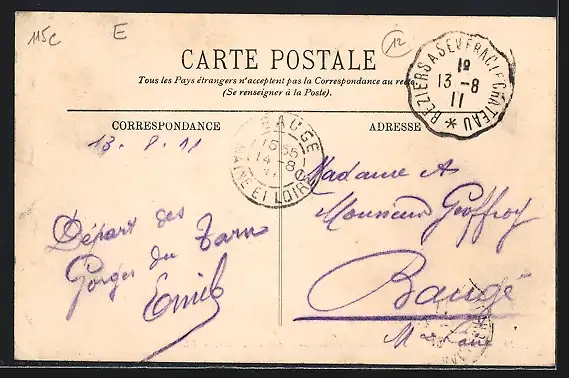 115c
E
12
CARTE POSTALE
Tous les Pays étrangers n'acceptent pas la Correspondance au recto
(Se renseigner à la Poste).
BEZIERS A SEVERAC LE CHATEAU *
1º
13 -8
11
CORRESPONDANCE
ADRESSE
BAUGÉ
15 55
14 -8
11
MAINE ET LOIRE
13.8.11
Départ des
Gorges du Tarn
Emile
Madame &
Monsieur Geoffroy
Baugé
M et Loire